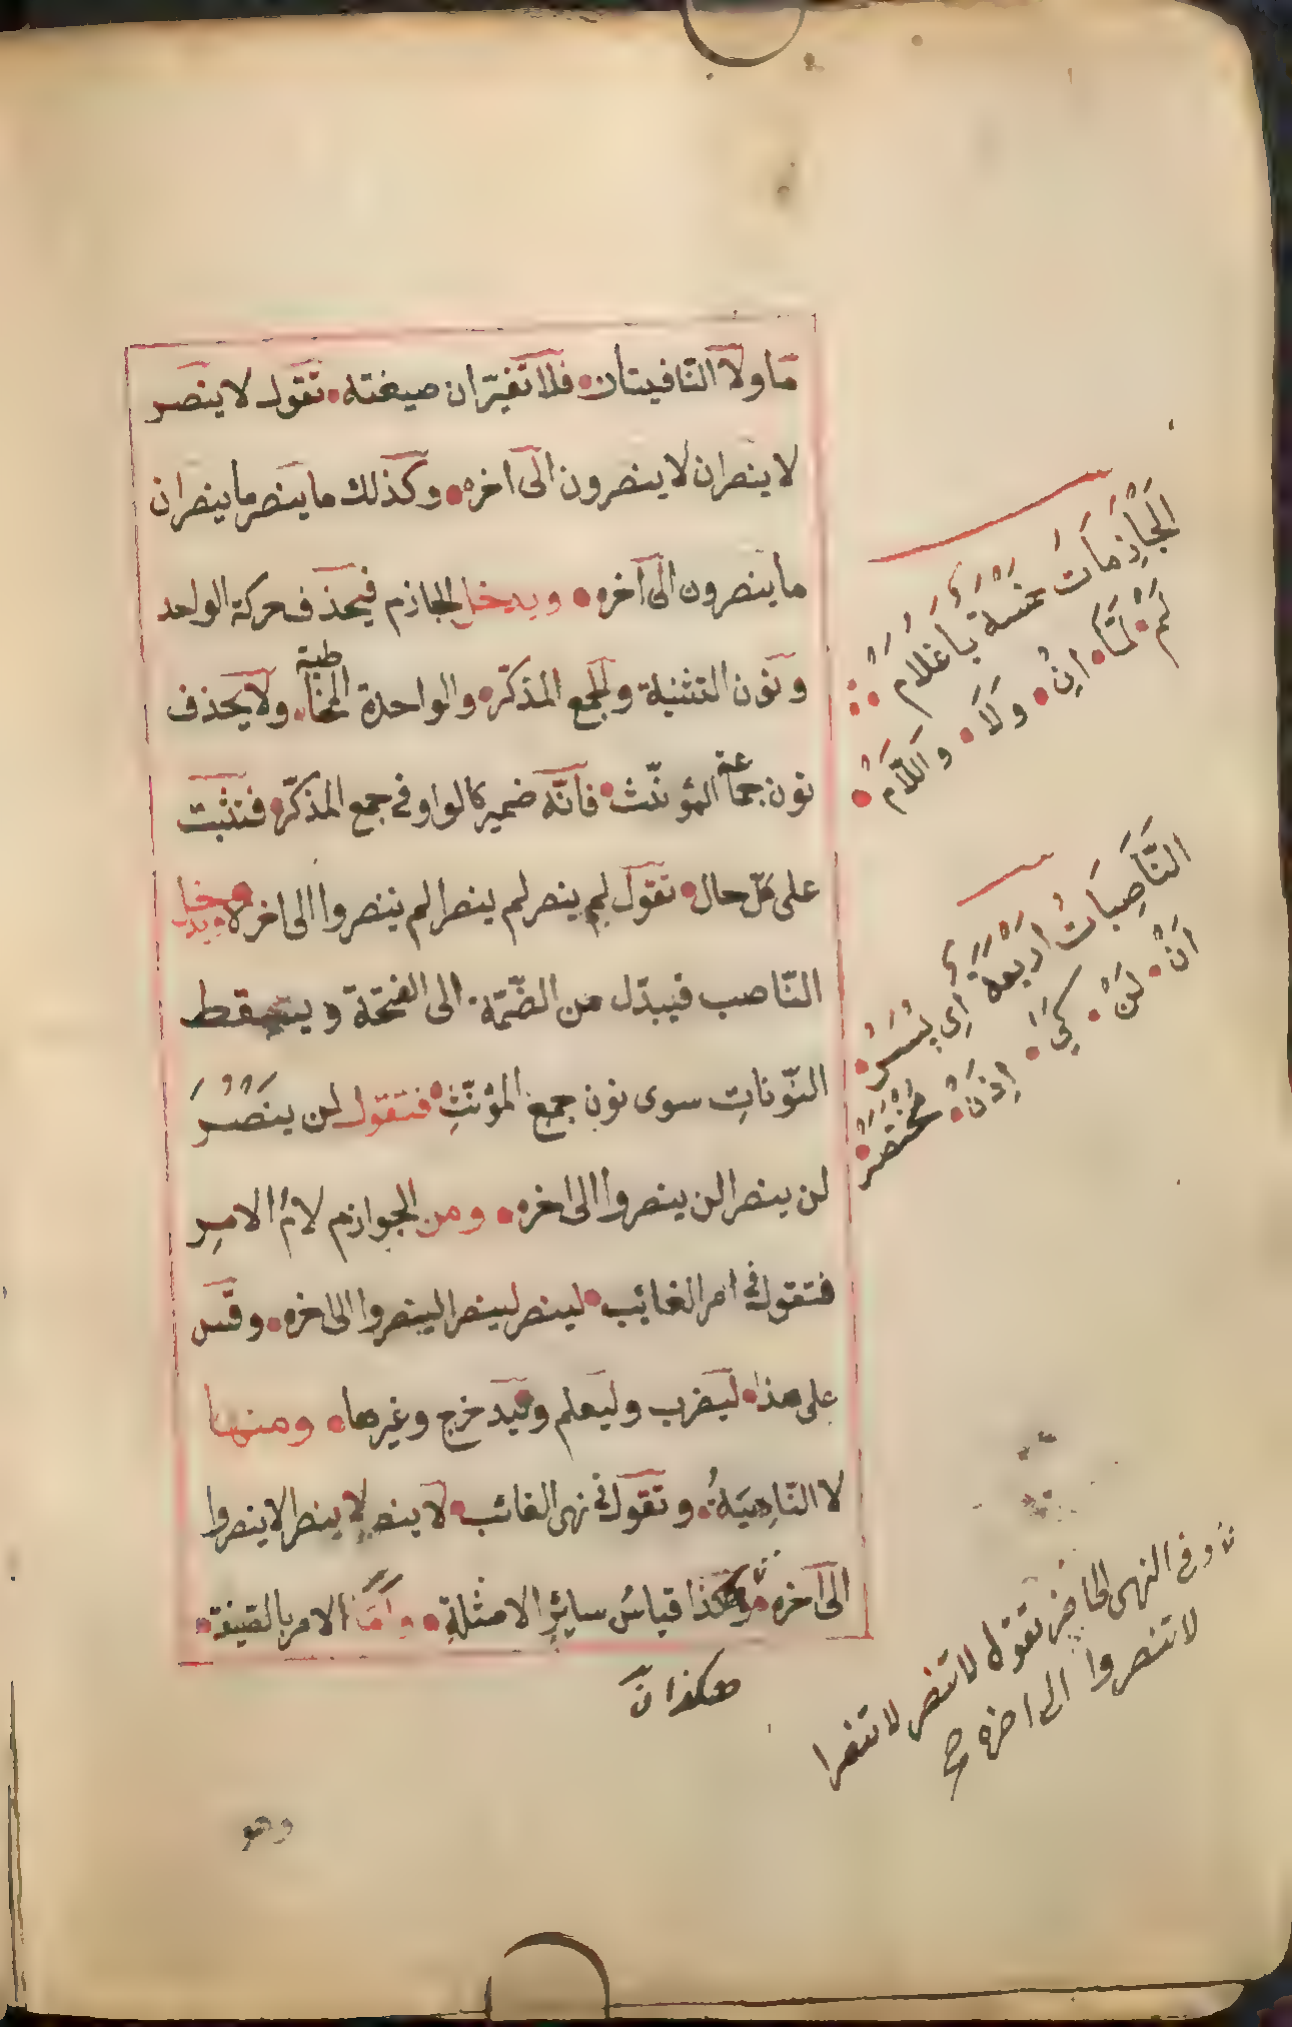 ما ولا النّافيتان فلا تغيّران صيغته تقول لا ينصر
لا ينصران لا ينصرون الى اخره وكذلك ما ينصر ما ينصران
ما ينصرون الى آخره ويدخل الجازم فيحذف حركة الواحد
ونون التثنية والجمع المذكّر والواحدة المخاطبة ولا يحذف
نون جماعة المؤنّث فانّه ضمير كالواو فى جمع المذكّر فتثبت
على كلّ حال تقول لم ينصر لم ينصرا لم ينصروا الى اخره ويدخل
النّاصب فيبدّل من الضّمّة الى الفتحة ويسقط
النّونات سوى نون جمع المؤنّث فتقول لن ينصُرَ
لن ينصرا لن ينصروا الى اخره ومن الجوازم لامُ الامرِ
فتقول فى امر الغائب لينصر لينصرا لينصروا الى اخره وقس
على هذا ليضرب وليعلم وليدخرج وغيرها ومنها
لا النّاهِيَةُ وتقول فى نهى الغائب لا ينصر لا ينصرا لا ينصروا
الى آخره وهكذا قياسُ سايِرِ الامثلةِ وامّا الامر بالصّيغة
هكذا نَ
وهو
الجَازِمَاتُ خَمْسَةٌ يَا غُلَامُ
لَمْ لَمَّا اِنْ وَلَا وَاللَّامُ
النَّاصِبَاتُ اَرْبَعَةٌ اى يُسَرُ
اَنْ لَنْ كَىْ اِذَنْ مُخْتَصَرْ
وفى النهى الحاضر تقول لا تنصر لا تنصرا
لا تنصروا الى اخره صح